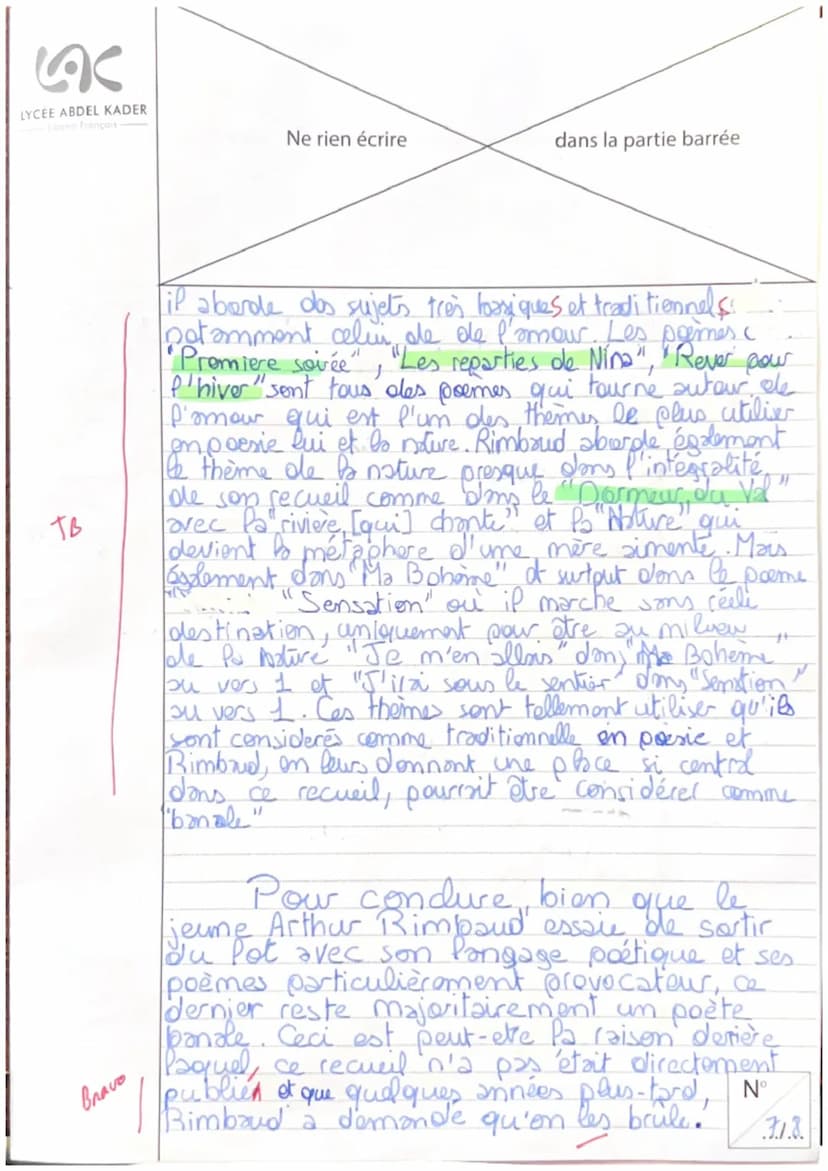 LYCÉE ABDEL KADER
Lycée Français
Ne rien écrire
dans la partie barrée
il aborde des sujets très basiques et traditionnels
notamment celui de de l'amour. Les poèmes
"Premiere soirée", "Les reparties de Nina", "Rever pour
l'hiver" sont tous des poèmes qui tourne autour de
l'amour qui est l'un des thèmes le plus utiliser
en poesie lui et la nature. Rimbaud aborde également
le thème de la nature presque dans l'intégralité
de son recueil comme dans le "Dormeur du Val"
avec la "rivière [qui] chante" et la "Nature" qui
TB
devient la métaphore d'une mère aimente. Mais
également dans "Ma Bohème" et surtout dans le poeme
"Sensation" où il marche sans réele
destination, uniquement pour être au milieu
de la Nature "Je m'en allais" dans "Ma Bohème"
au vers 1 et "J'irai sous le sentier" dans "Senstion"
au vers 1. Ces thèmes sont tellement utiliser qu'ils
sont considerés comme traditionnelle en poesie et
Rimbaud, en leurs donnant une place si central
dans ce recueil, pourrait être considérer comme
"banale"
Pour conclure, bien que le
jeune Arthur Rimbaud essaie de sortir
du lot avec son langage poétique et ses
poèmes particulièrement provocateur, ce
dernier reste majoritairement un poète
banale. Ceci est peut-etre la raison derière
laquel, ce recueil n'a pas était directement
Bravo
publié et que quelques années plus-tard,
Rimbaud a demandé qu'on les brûle.
N°
7/8